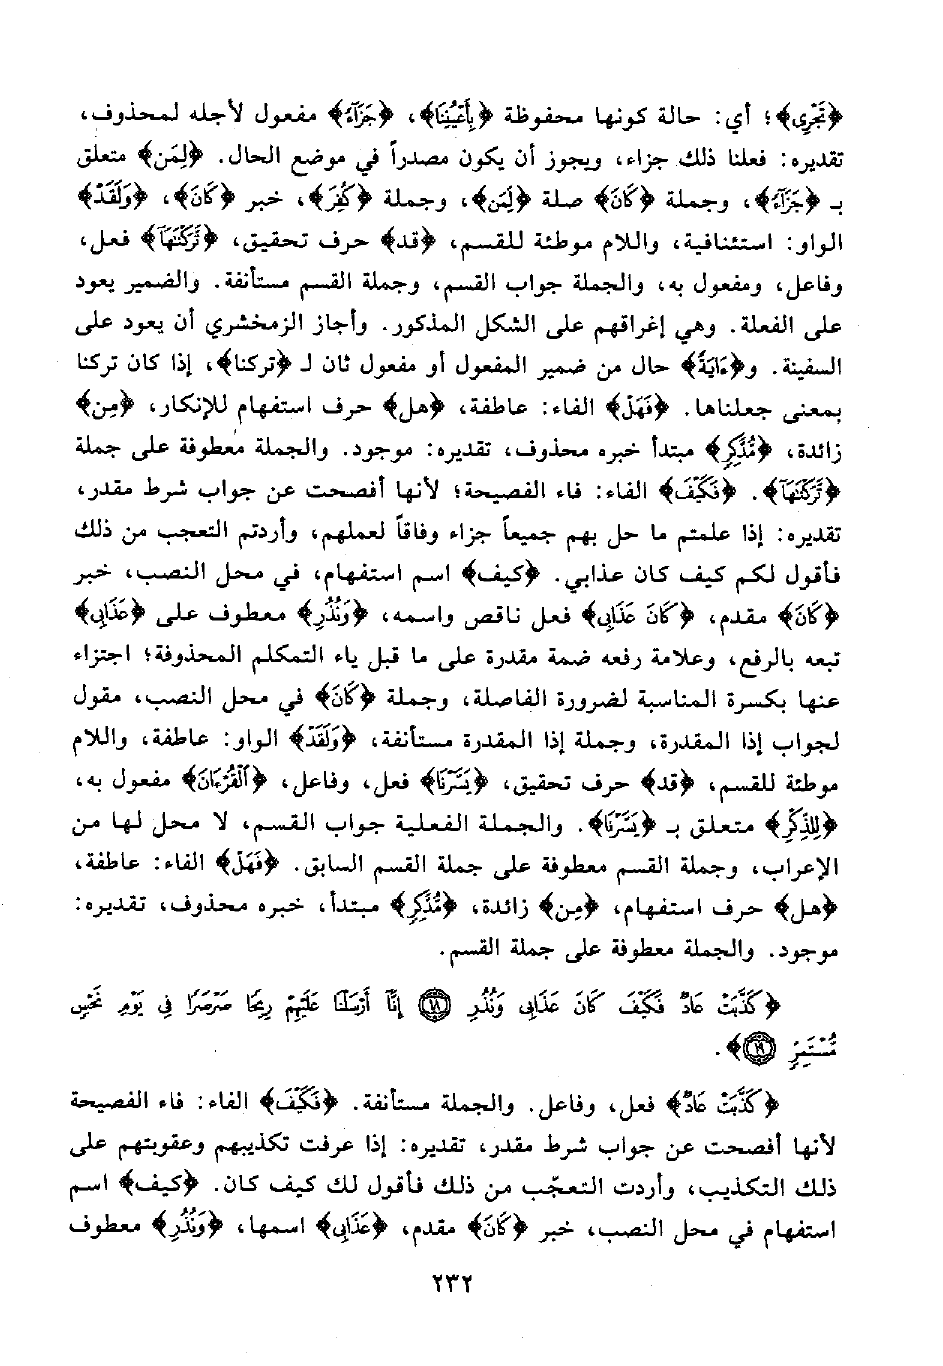 ﴿تَجْرِي﴾؛ أي: حالة كونها محفوظة ﴿بِأَعْيُنِنَا﴾، ﴿جَزَاءً﴾ مفعول لأجله لمحذوف،
تقديره: فعلنا ذلك جزاء، ويجوز أن يكون مصدراً في موضع الحال. ﴿لِّمَن﴾ متعلق
بـ ﴿جَزَاءً﴾، وجملة ﴿كَانَ﴾ صلة ﴿لِّمَن﴾، وجملة ﴿كُفِرَ﴾، خبر ﴿كَانَ﴾، ﴿وَلَقَد﴾
الواو: استئنافية، واللام موطئة للقسم، ﴿قد﴾ حرف تحقيق، ﴿تَّرَكْنَاهَا﴾ فعل،
وفاعل، ومفعول به، والجملة جواب القسم، وجملة القسم مستأنفة. والضمير يعود
على الفعلة. وهي إغراقهم على الشكل المذكور. وأجاز الزمخشري أن يعود على
السفينة. و﴿ءَايَةً﴾ حال من ضمير المفعول أو مفعول ثان لـ ﴿تركنا﴾، إذا كان تركنا
بمعنى جعلناها. ﴿فَهَلْ﴾ الفاء: عاطفة، ﴿هل﴾ حرف استفهام للإنكار، ﴿مِن﴾
زائدة، ﴿مُّدَّكِرٍ﴾ مبتدأ خبره محذوف، تقديره: موجود. والجملة معطوفة على جملة
﴿تَّرَكْنَاهَا﴾. ﴿فَكَيْفَ﴾ الفاء: فاء الفصيحة؛ لأنها أفصحت عن جواب شرط مقدر،
تقديره: إذا علمتم ما حل بهم جميعاً جزاء وفاقاً لعملهم، وأردتم التعجب من ذلك
فأقول لكم كيف كان عذابي. ﴿كيف﴾ اسم استفهام، في محل النصب، خبر
﴿كَانَ﴾ مقدم، ﴿كَانَ عَذَابِى﴾ فعل ناقص واسمه، ﴿وَنُذُرِ﴾ معطوف على ﴿عَذَابِى﴾
تبعه بالرفع، وعلامة رفعه ضمة مقدرة على ما قبل ياء التمكلم المحذوفة؛ اجتزاء
عنها بكسرة المناسبة لضرورة الفاصلة، وجملة ﴿كَانَ﴾ في محل النصب، مقول
لجواب إذا المقدرة، وجملة إذا المقدرة مستأنفة، ﴿وَلَقَدْ﴾ الواو: عاطفة، واللام
موطئة للقسم، ﴿قد﴾ حرف تحقيق، ﴿يَسَّرْنَا﴾ فعل، وفاعل، ﴿ٱلْقُرْءَانَ﴾ مفعول به،
﴿لِلذِّكْرِ﴾ متعلق بـ ﴿يَسَّرْنَا﴾. والجملة الفعلية جواب القسم، لا محل لها من
الإعراب، وجملة القسم معطوفة على جملة القسم السابق. ﴿فَهَلْ﴾ الفاء: عاطفة،
﴿هل﴾ حرف استفهام، ﴿مِن﴾ زائدة، ﴿مُّدَّكِرٍ﴾ مبتدأ، خبره محذوف، تقديره:
موجود. والجملة معطوفة على جملة القسم.
﴿كَذَّبَتْ عَادٌ فَكَيْفَ كَانَ عَذَابِى وَنُذُرِ ١٨ إِنَّا أَرْسَلْنَا عَلَيْهِمْ رِيحًا صَرْصَرًا فِى يَوْمِ نَحْسٍ
مُّسْتَمِرٍّ ١٩﴾.
﴿كَذَّبَتْ عَادٌ﴾ فعل، وفاعل. والجملة مستأنفة. ﴿فَكَيْفَ﴾ الفاء: فاء الفصيحة
لأنها أفصحت عن جواب شرط مقدر، تقديره: إذا عرفت تكذيبهم وعقوبتهم على
ذلك التكذيب، وأردت التعجّب من ذلك فأقول لك كيف كان. ﴿كيف﴾ اسم
استفهام في محل النصب، خبر ﴿كَانَ﴾ مقدم، ﴿عَذَابِى﴾ اسمها، ﴿وَنُذُرِ﴾ معطوف
٢٣٢